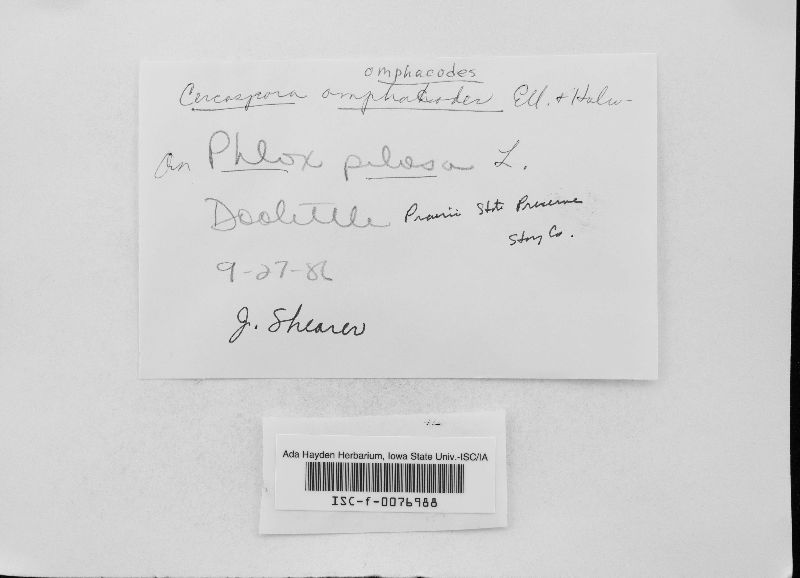 omphacodes
Cercospora omphalodes Ell. + Holw-
On Phlox pilosa L.
Doolittle Prairie State Preserve
Story Co.
9-27-86
J. Shearer
Ada Hayden Herbarium, Iowa State Univ.-ISC/IA
ISC-f-0076988